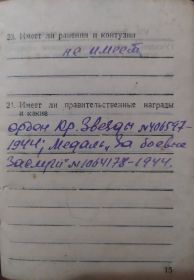 20. Имеет ли ранения и контузии
не имеет
21. Имеет ли правительственные награды
и какие
орден Кр. Звезды №406547-
1944, Медаль "За боевые
Заслуги" №1064178-1944.
15